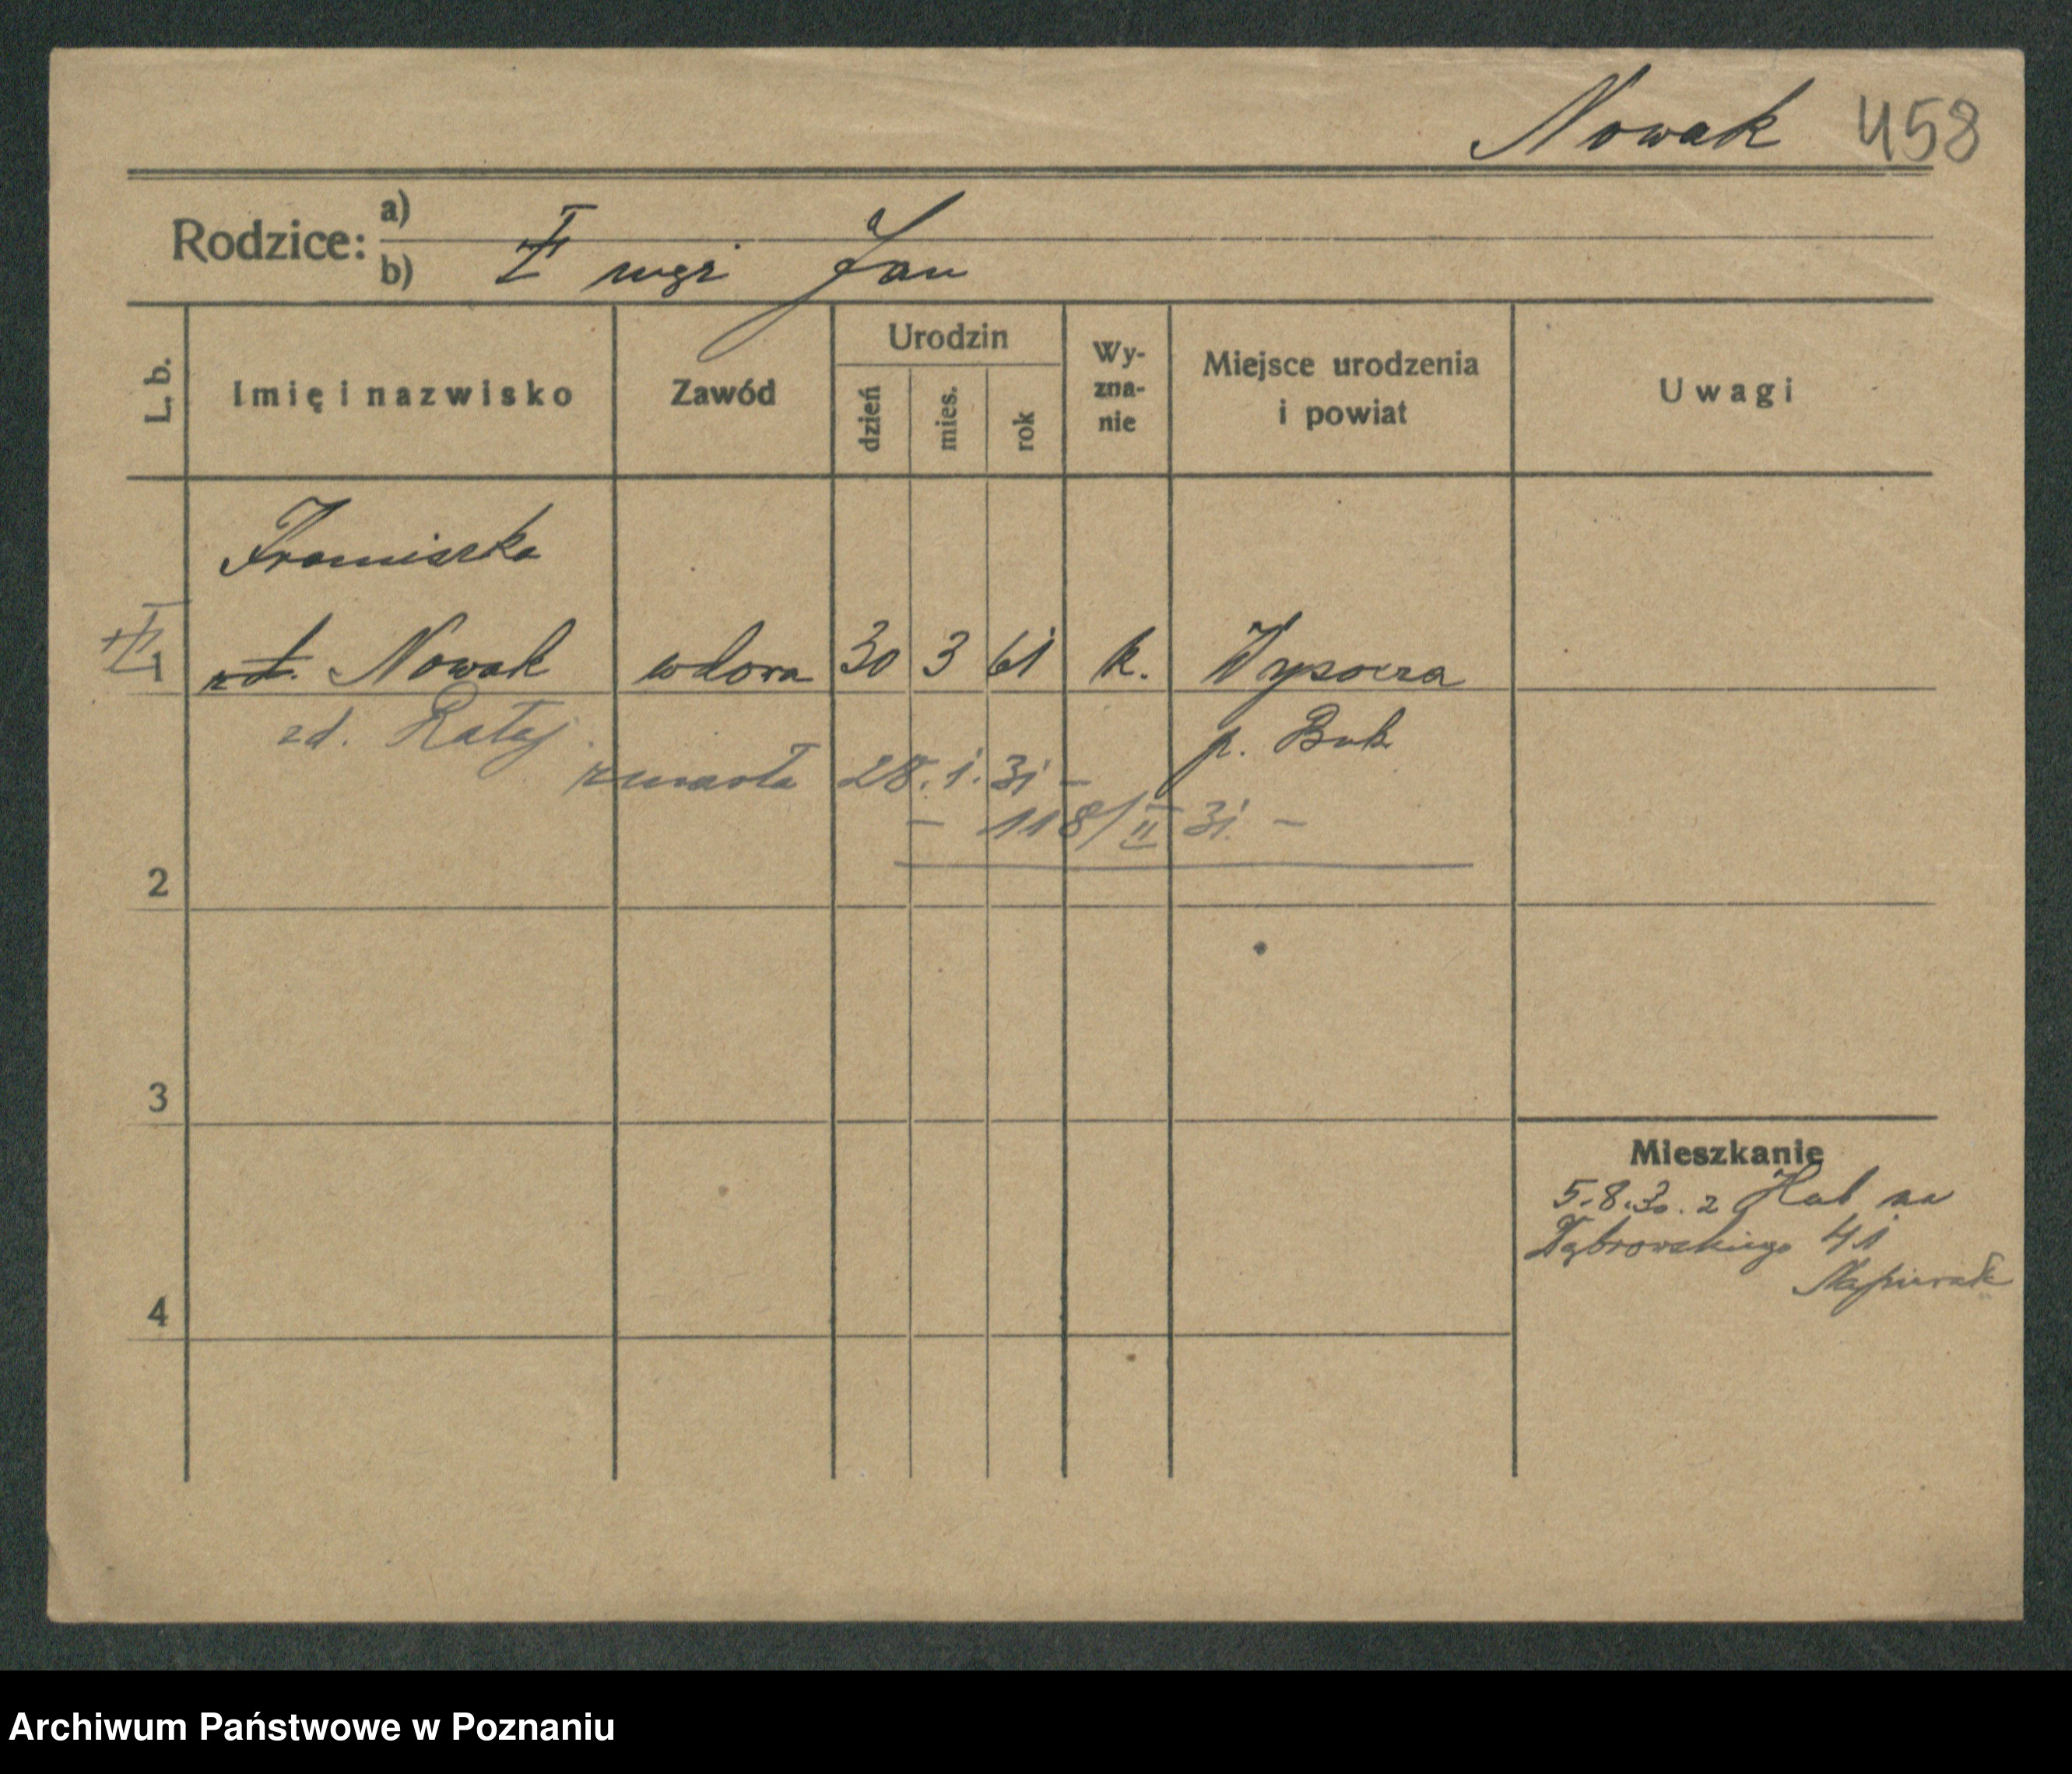 Nowak 458
Rodzice: a)
b) mąż Jan
L. b.
Imię i nazwisko
Zawód
Urodzin
dzień
mies.
rok
Wy-
zna-
nie
Miejsce urodzenia
i powiat
Uwagi
Franciszka
1 zd. Nowak wdowa 30 3 61 k. Wysoczka
zd. Rataj. p. Buk
zmarła 28. 1. 31 -
- 118/II 31. -
2
3
4
Mieszkanie
5.8.30. z Hal. na
Dąbrowskiego 41
Napierała
Archiwum Państwowe w Poznaniu